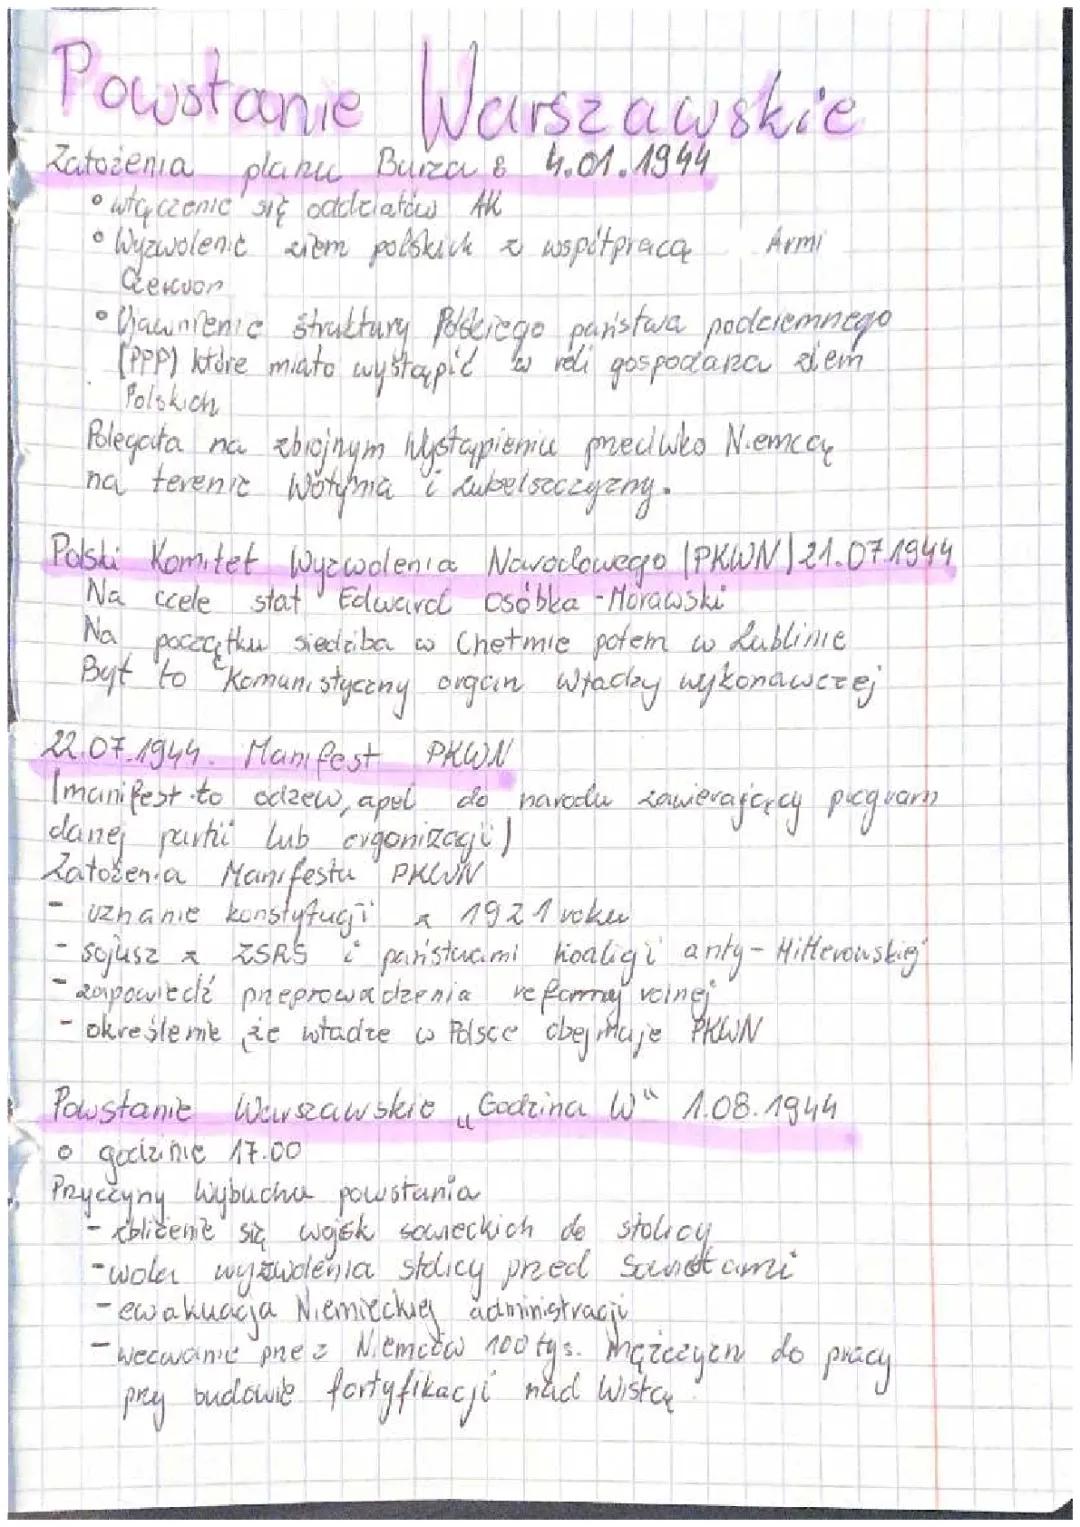 Powstanie Warszawskie
Założenia planu Burza 4.01.1944
• włączenie się oddziałów AK
• Wyzwolenie ziem polskich z współpracą Armi
Czerwon
• Ujawnienie struktury Polskiego państwa podziemnego
(PPP) które miało wystąpić w roli gospodarza ziem
Polskich
Polegała na zbrojnym Wystąpieniu przeciwko Niemcą
na terenie Wołynia i Lubelszczyzny.
Polski Komitet Wyzwolenia Narodowego (PKWN) 21.07.1944
Na czele stał Edward Osóbka-Morawski
Na początku siedziba w Chełmie potem w Lublinie
Był to Komunistyczny organ władzy wykonawczej
22.07.1944. Manifest PKWN
(manifest-to odzew, apel do narodu zawierający program
danej partii lub organizacji)
Założenia Manifestu PKWN
- uznanie konstytucji z 1921 roku
- sojusz z ZSRS i państwami koalicji anty-Hitlerowskiej
- zapowiedź przeprowadzenia reformy rolnej
- określenie że władze w Polsce obejmuje PKWN
Powstanie Warszawskie „Godzina W" 1.08.1944
o godzinie 17.00
Przyczyny Wybuchu powstania
- zbliżenie się wojsk sowieckich do stolicy
- wola wyzwolenia stolicy przed Sowietami
- ewakuacja Niemieckiej administracji
- wezwanie przez Niemców 100 tys. mężczyzn do pracy
przy budowie fortyfikacji nad Wisłą